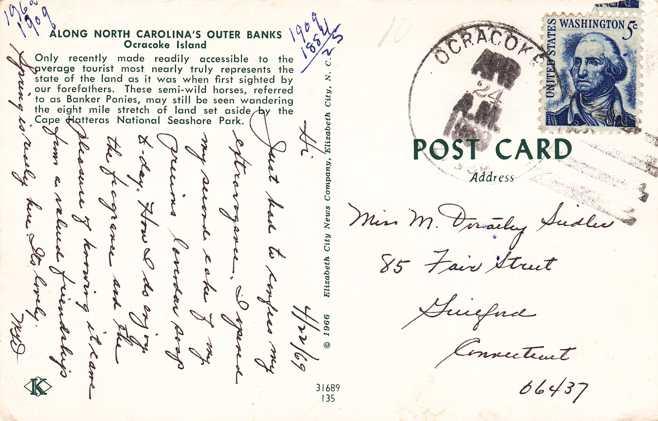 1968
1909
1909
1884
25
ALONG NORTH CAROLINA'S OUTER BANKS
Ocracoke Island
Only recently made readily accessible to the
average tourist most nearly truly represents the
state of the land as it was when first sighted by
our forefathers. These semi-wild horses, referred
to as Banker Ponies, may still be seen wandering
the eight mile stretch of land set aside by the
Cape Hatteras National Seashore Park.
4/22/69
Hi
Just had to confess my
extravagance. I opened
my second cake of my
precious lavender soap
today. How I do enjoy
the fragrance and the
pleasure of knowing it came
from a valued friendship.
Spring is truly here. It's lovely.
K
31689
135
© 1966 Elizabeth City News Company, Elizabeth City, N. C.
OCRACOKE
APR
24
A.M.
UNITED STATES
WASHINGTON 5c
POST CARD
Address
Miss M. Dorothy Seidler
85 Fair Street
Guilford
Connecticut
06437